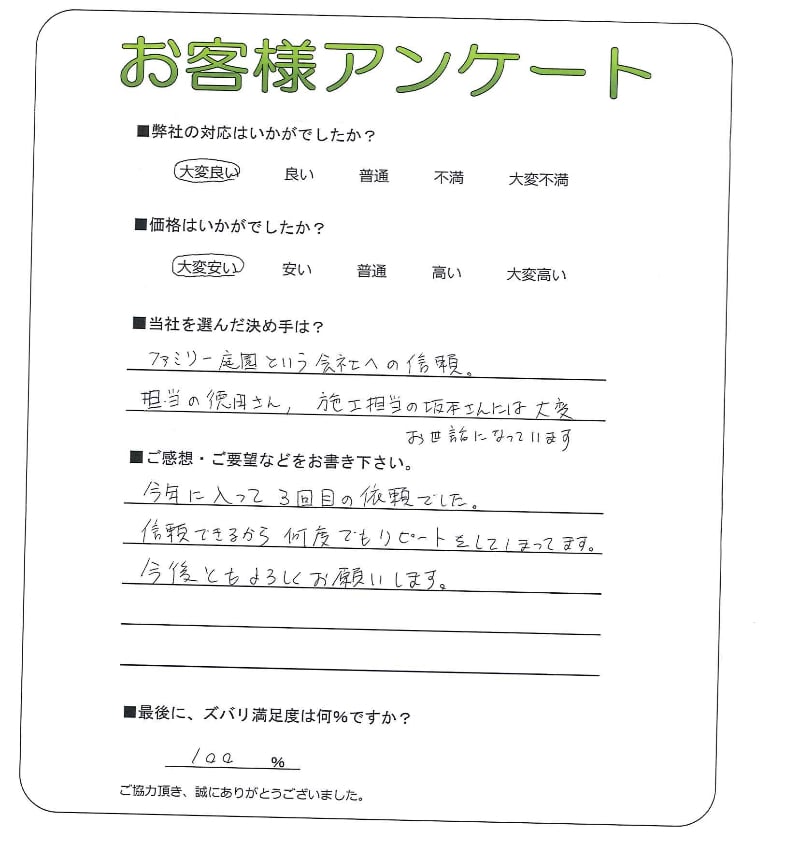 お客様アンケート
■弊社の対応はいかがでしたか？
大変良い 良い 普通 不満 大変不満
■価格はいかがでしたか？
大変安い 安い 普通 高い 大変高い
■当社を選んだ決め手は？
ファミリー庭園という会社への信頼。
担当の徳田さん, 施工担当の坂本さんには大変
お世話になっています
■ご感想・ご要望などをお書き下さい。
今年に入って3回目の依頼でした。
信頼できるから何度でもリピートをしてしまってます。
今後ともよろしくお願いします。
■最後に、ズバリ満足度は何％ですか？
100 ％
ご協力頂き、誠にありがとうございました。